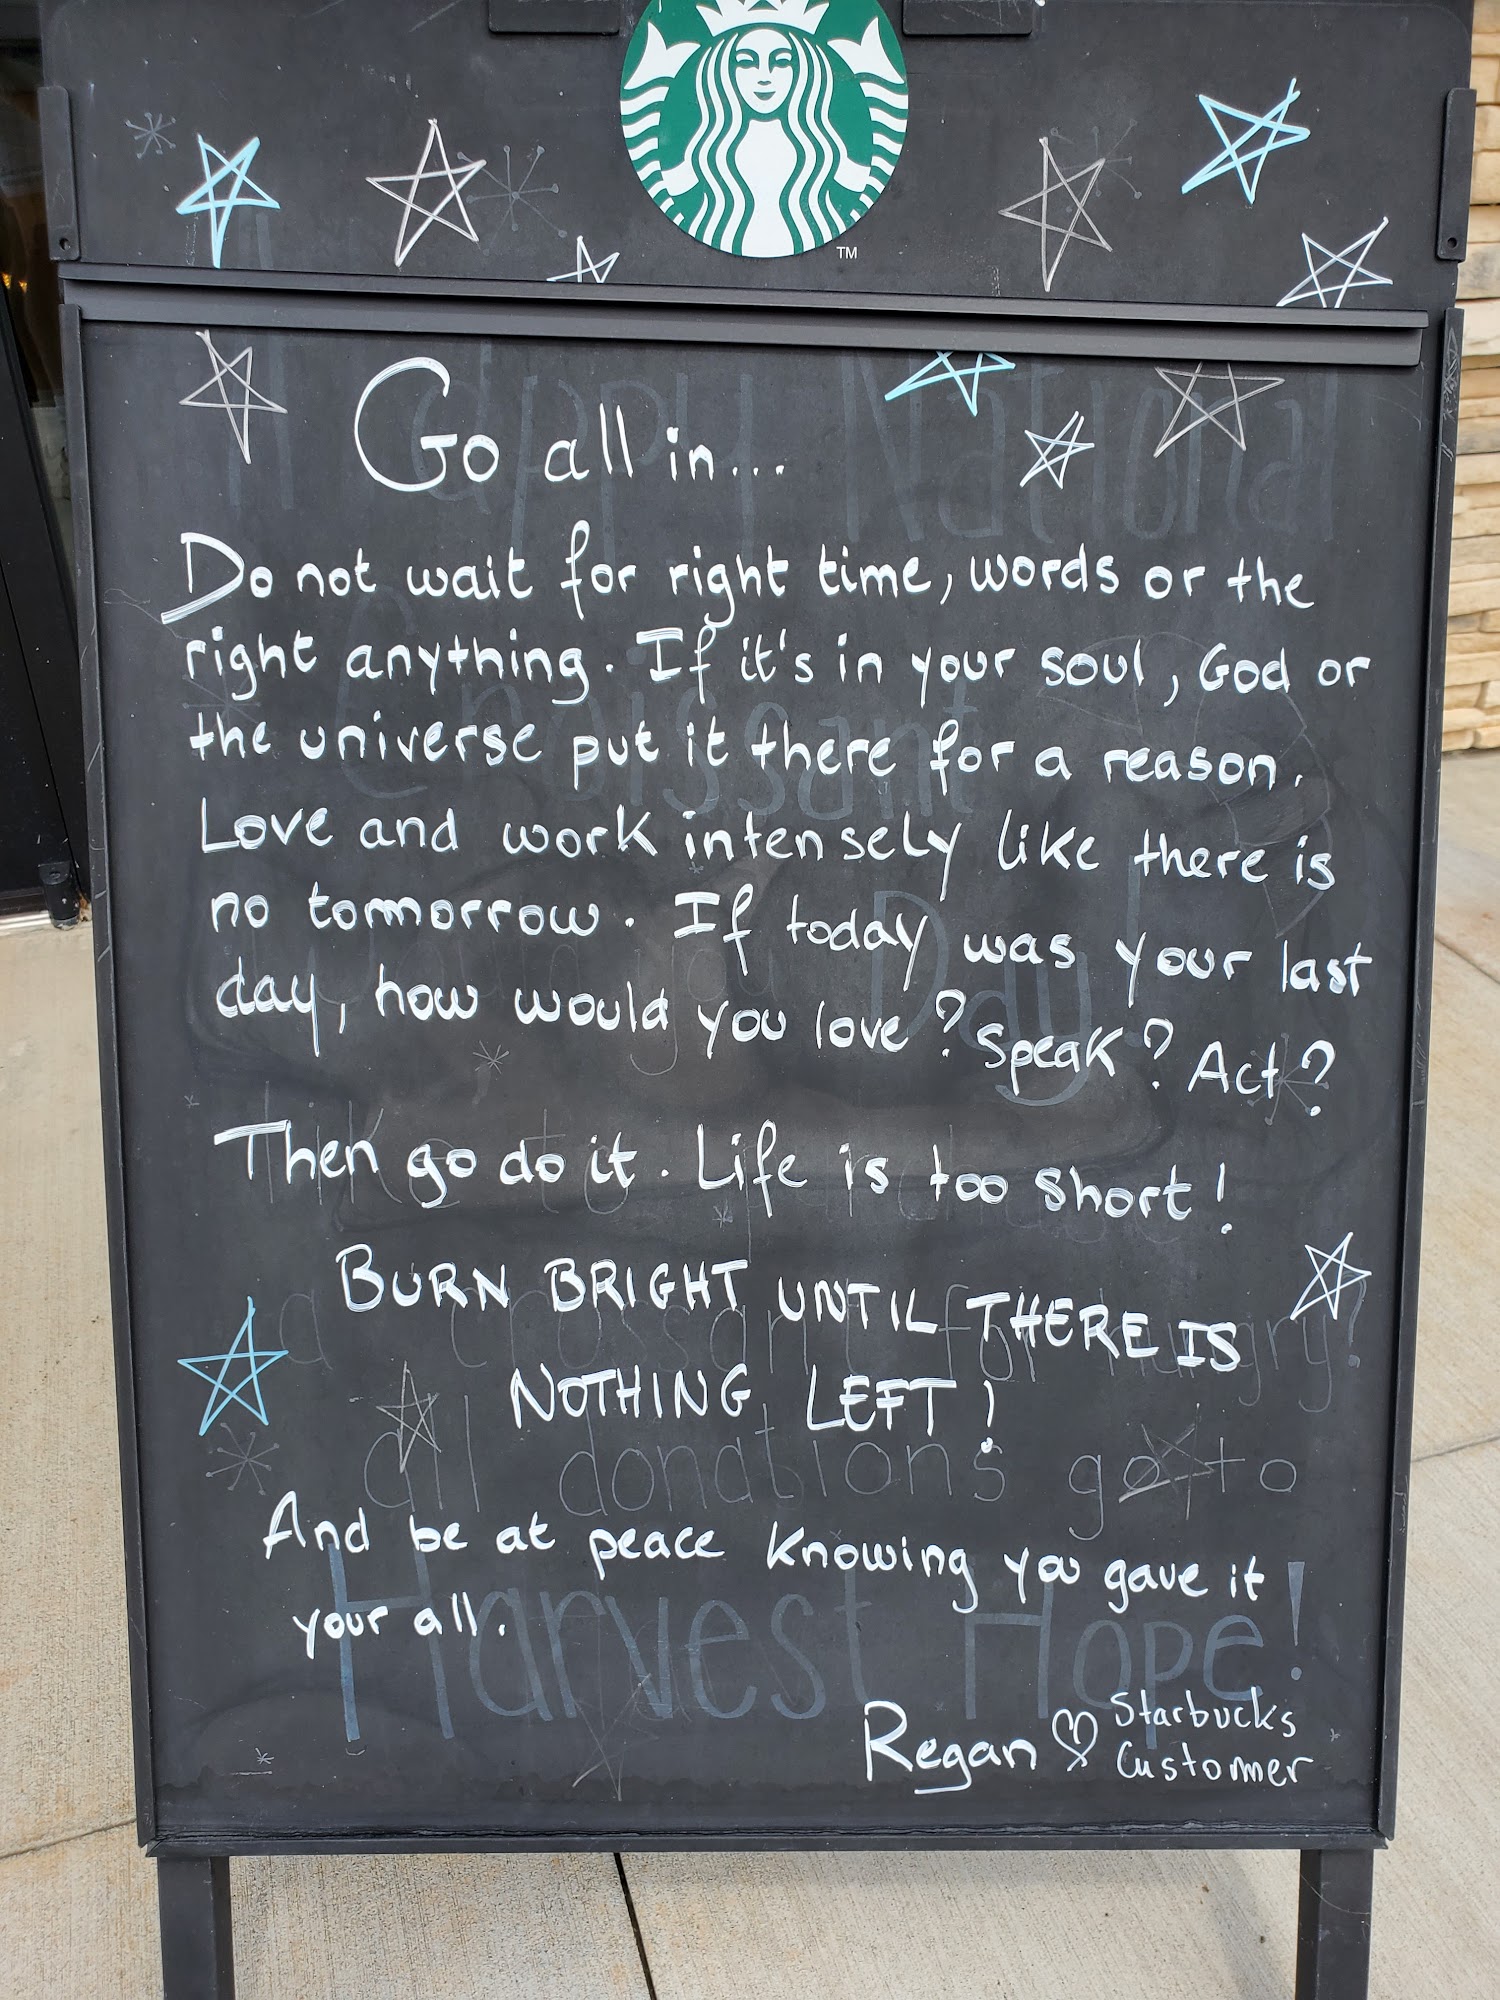 TM
Go all in...
Do not wait for right time, words or the
right anything. If it's in your soul, God or
the universe put it there for a reason.
Love and work intensely like there is
no tomorrow. If today was your last
day, how would you love? Speak? Act?
Then go do it. Life is too short!
BURN BRIGHT UNTIL THERE IS
NOTHING LEFT!
And be at peace knowing you gave it
your all.
Regan ♡ Starbucks
Customer
Happy National
Croissant
Day!
would you
like to purchase
a croissant for hungry?
all donations go to
Harvest Hope!